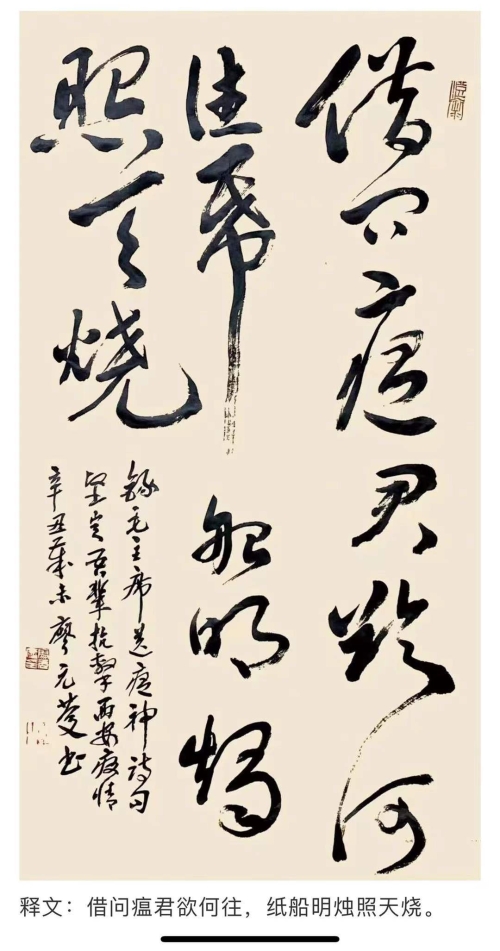 借问瘟君欲何
往帋船明烛
照天烧
録毛主席送瘟神诗句
坚定吾辈抗擊西安疫情
辛丑岁末廖元书
释文：借问瘟君欲何往，纸船明烛照天烧。